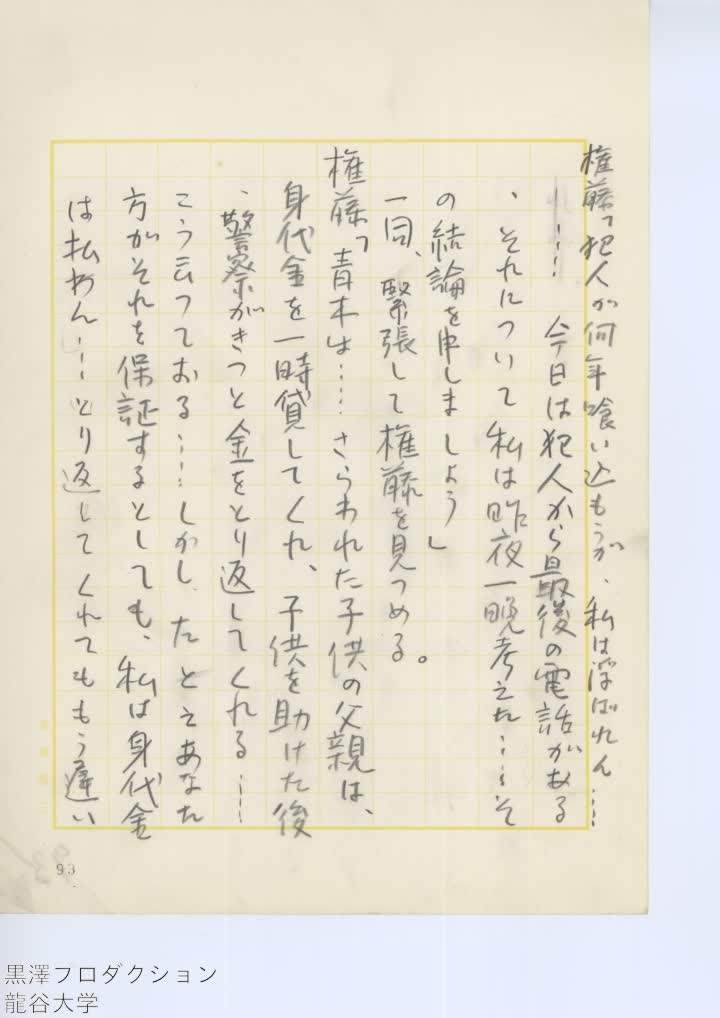 権藤「犯人が何年喰い込もうが、私は浮ばれん……
……今日は犯人から最後の電話がある
、それについて私は昨夜一晩考えた……そ
の結論を申しましょう」
一同、緊張して権藤を見つめる。
権藤「青木は……さらわれた子供の父親は、
身代金を一時貸してくれ、子供を助けた後
、警察がきっと金をとり返してくれる……
こう云っておる……しかし、たとえあなた
方がそれを保証するとしても、私は身代金
は払わん……とり返してくれてももう遅い
93
黒澤プロダクション
龍谷大学